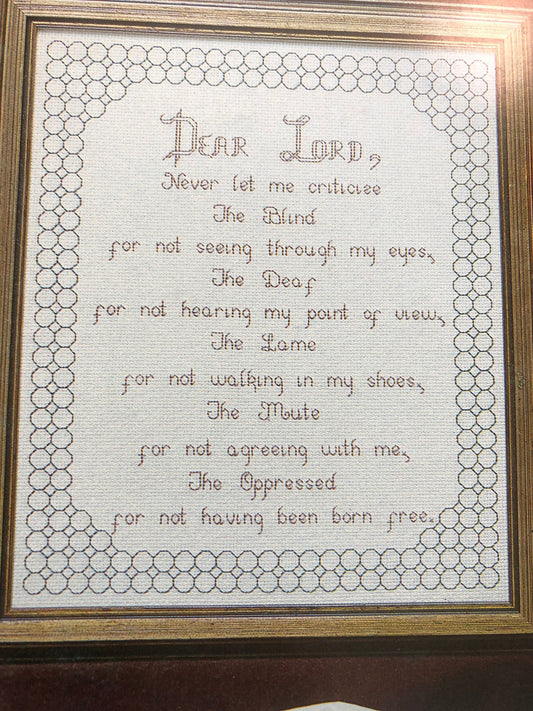 Dear Lord,
Never let me criticize
The Blind
for not seeing through my eyes,
The Deaf
for not hearing my point of view,
The Lame
for not walking in my shoes,
The Mute
for not agreeing with me,
The Oppressed
for not having been born free.